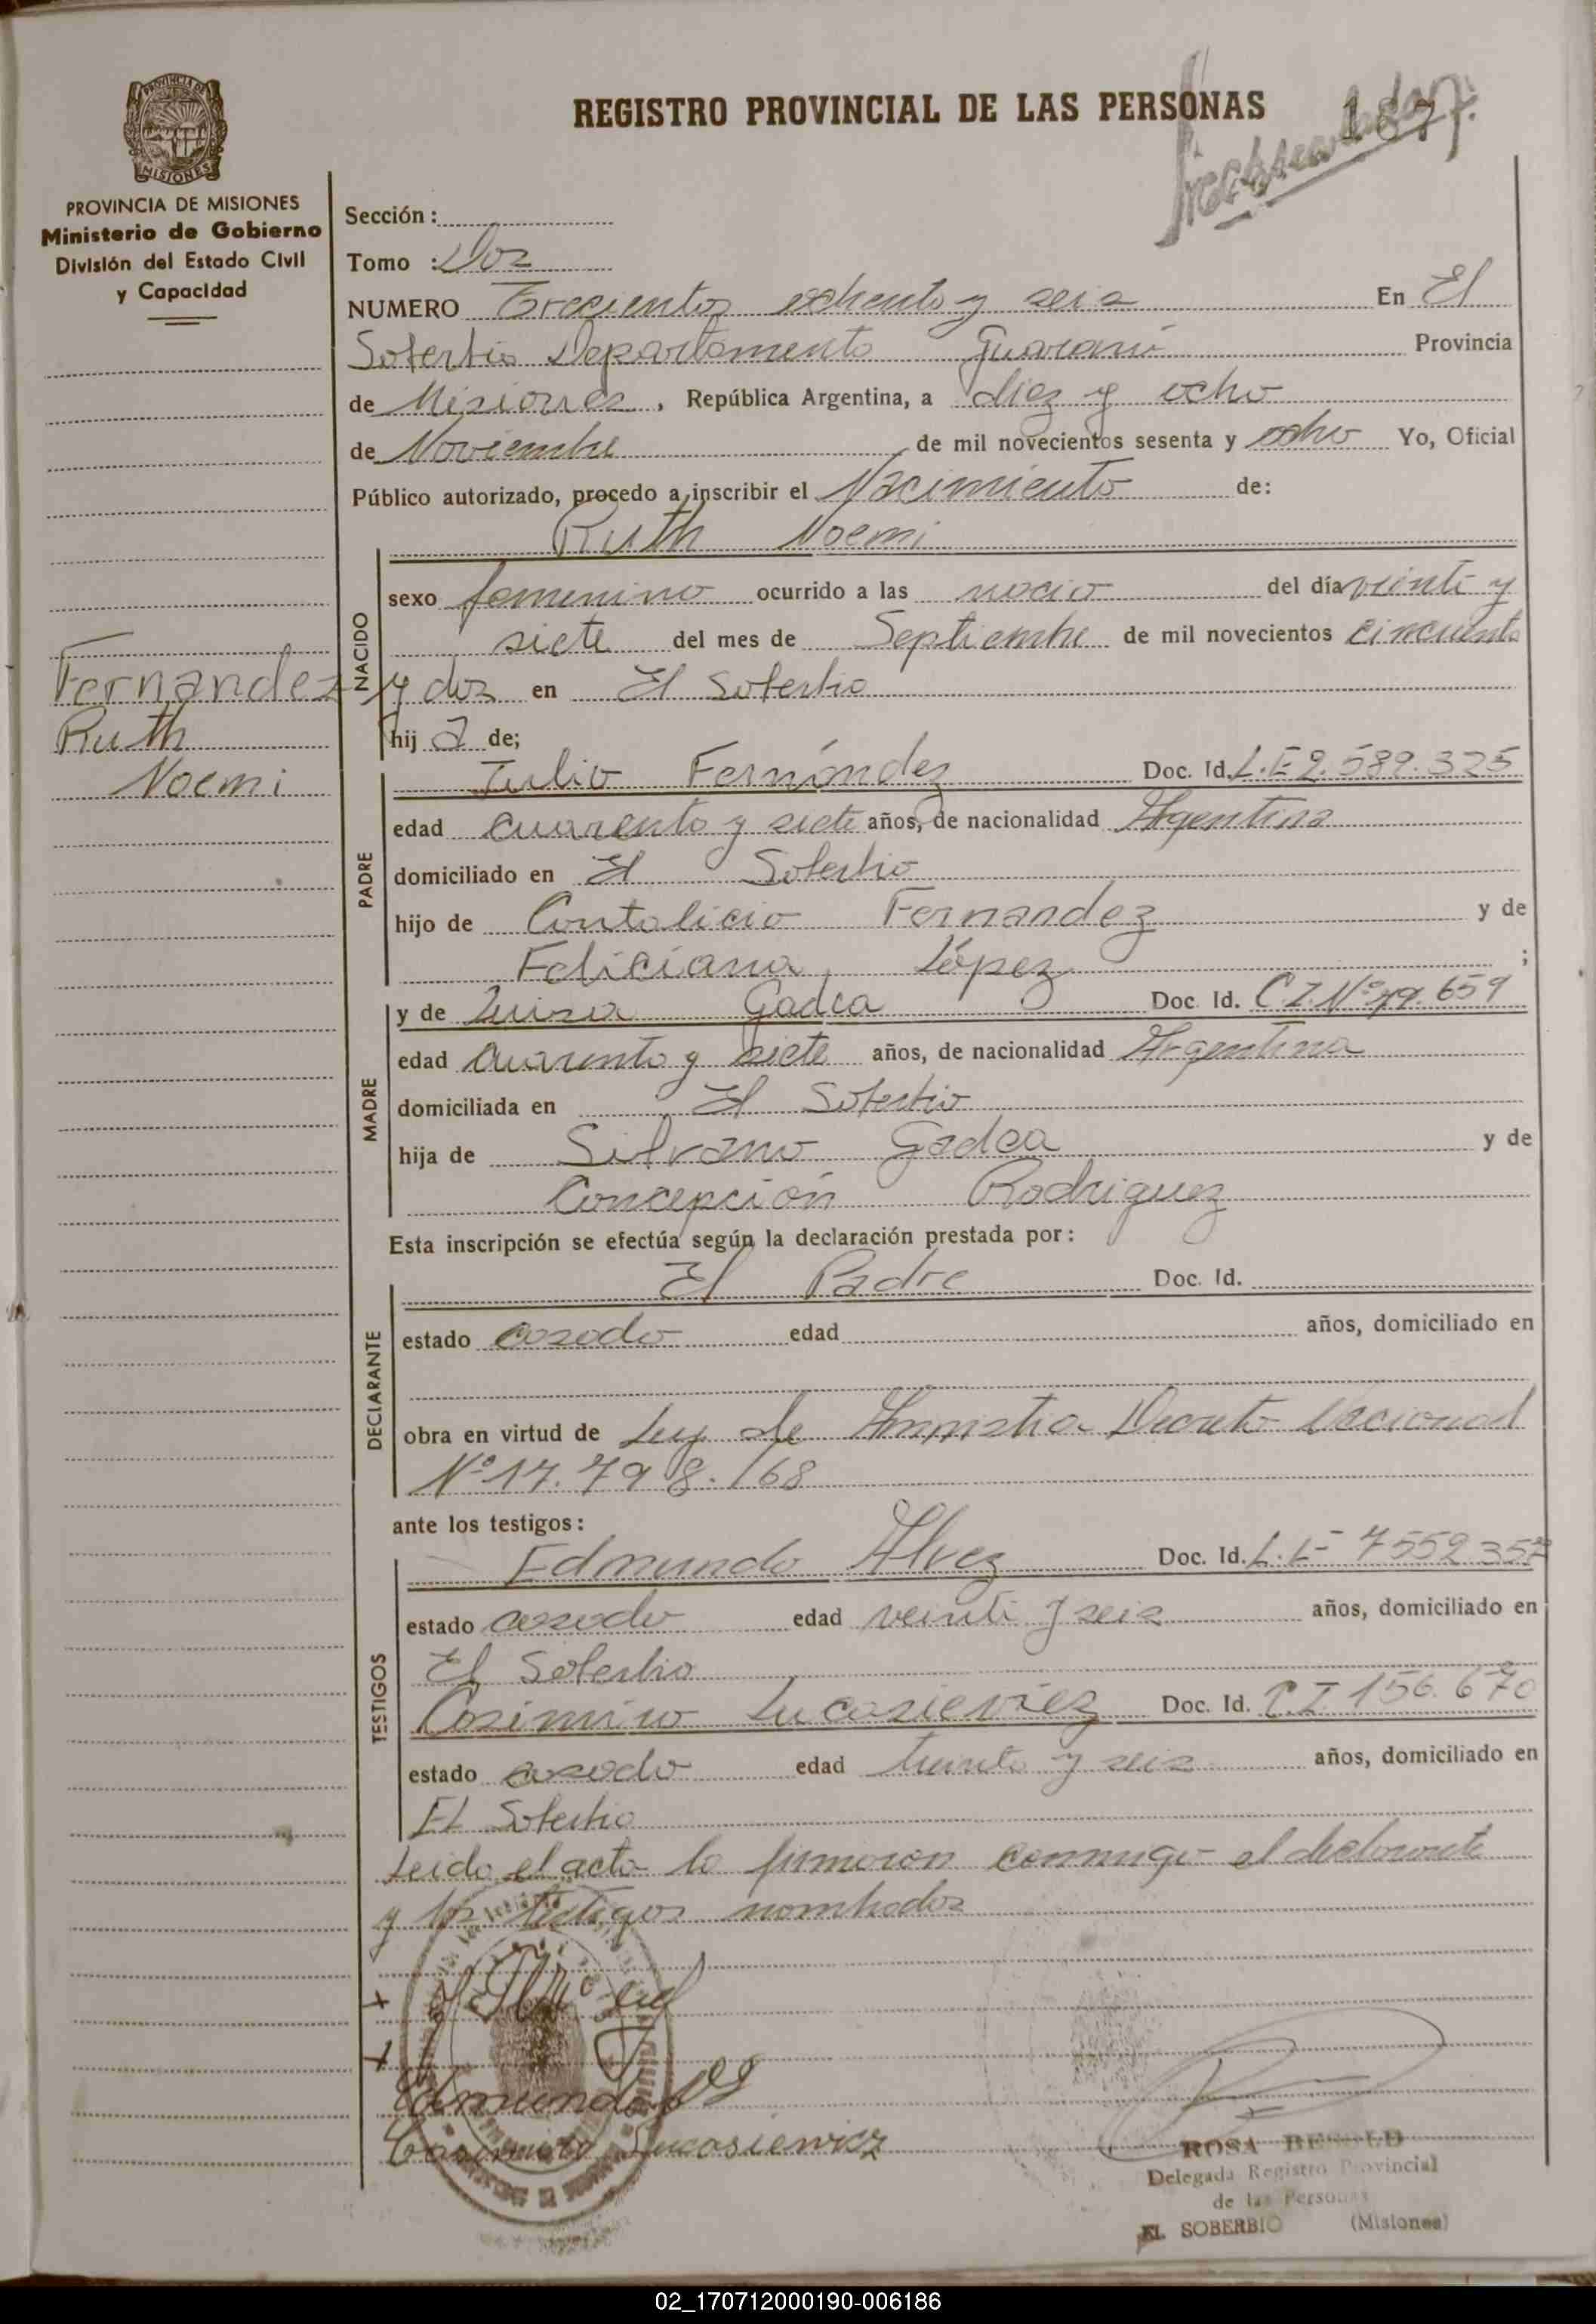 REGISTRO PROVINCIAL DE LAS PERSONAS
187
PROVINCIA DE
MISIONES
PROVINCIA DE MISIONES
Ministerio de Gobierno
División del Estado Civil
y Capacidad
Sección :
Tomo : Dos
NUMERO Trecientos ochenta y seis En El
Soberbio Departamento Guaraní Provincia
de Misiones , República Argentina, a diez y ocho
de Noviembre de mil novecientos sesenta y ocho Yo, Oficial
Público autorizado, procedo a inscribir el Nacimiento de:
Ruth Noemi
NACIDO
sexo femenino ocurrido a las nocio del día vienti y
siete del mes de Septiembre de mil novecientos cincuenta
y dos en El Soberbio
hij a de;
Fernandez
Ruth
Noemi
PADRE
Julio Fernández Doc. Id. L.E 2.589.325
edad cuarenta y siete años, de nacionalidad Argentina
domiciliado en El Soberbio
hijo de Fernandez y de
Feliciana López ;
MADRE
y de Luisa Gadea Doc. Id. C I. Nº 79.659
edad cuarenta y siete años, de nacionalidad Argentina
domiciliada en El Soberbio
hija de Silvano Gadea y de
Concepción Rodriguez
Esta inscripción se efectúa según la declaración prestada por :
DECLARANTE
El Padre Doc. Id.
estado casado edad años, domiciliado en
obra en virtud de Ley de Amnistia Decreto Nacional
Nº 17.798./68
ante los testigos :
TESTIGOS
Edmundo Alvez Doc. Id. L.E 7552357
estado casado edad veinti y seis años, domiciliado en
El Soberbio
Casimiro Lucasieviez Doc. Id. C.I 156.670
estado casado edad treinta y seis años, domiciliado en
El Soberbio
Leido el acta la firmaron conmigo el declarante
y los testigos nombrados
Edmundo
Casimiro Lucasiewicz
ROSA
Delegada Registro Provincial
de las Personas
EL SOBERBIO (Misiones)
02_170712000190-006186